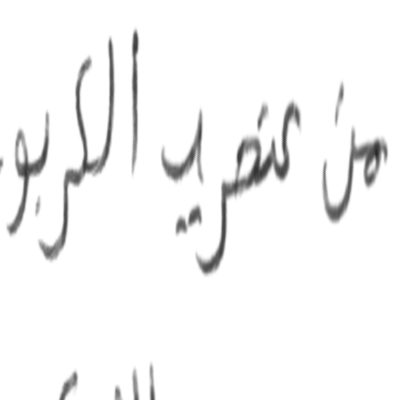 من عنصري الكربو